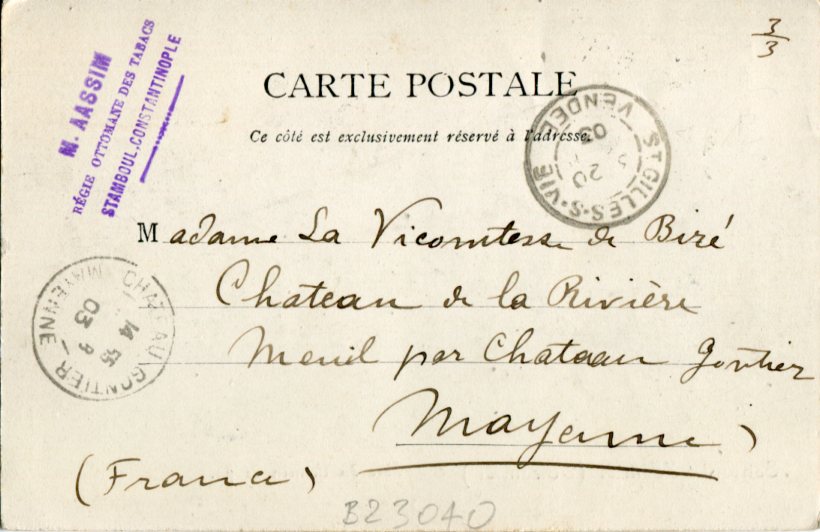 3/3
M. AASSIM
RÉGIE OTTOMANE DES TABACS
STAMBOUL.CONSTANTINOPLE
CARTE POSTALE
Ce côté est exclusivement réservé à l'adresse.
ST GILLES-S-VIE
VENDEE
20
03
Madame La Vicomtesse de Biré
Chateau de la Rivière
Menil par Chateau Gontier
Mayenne
(France)
CHATEAU-GONTIER
MAYENNE
14 55
03
B23040